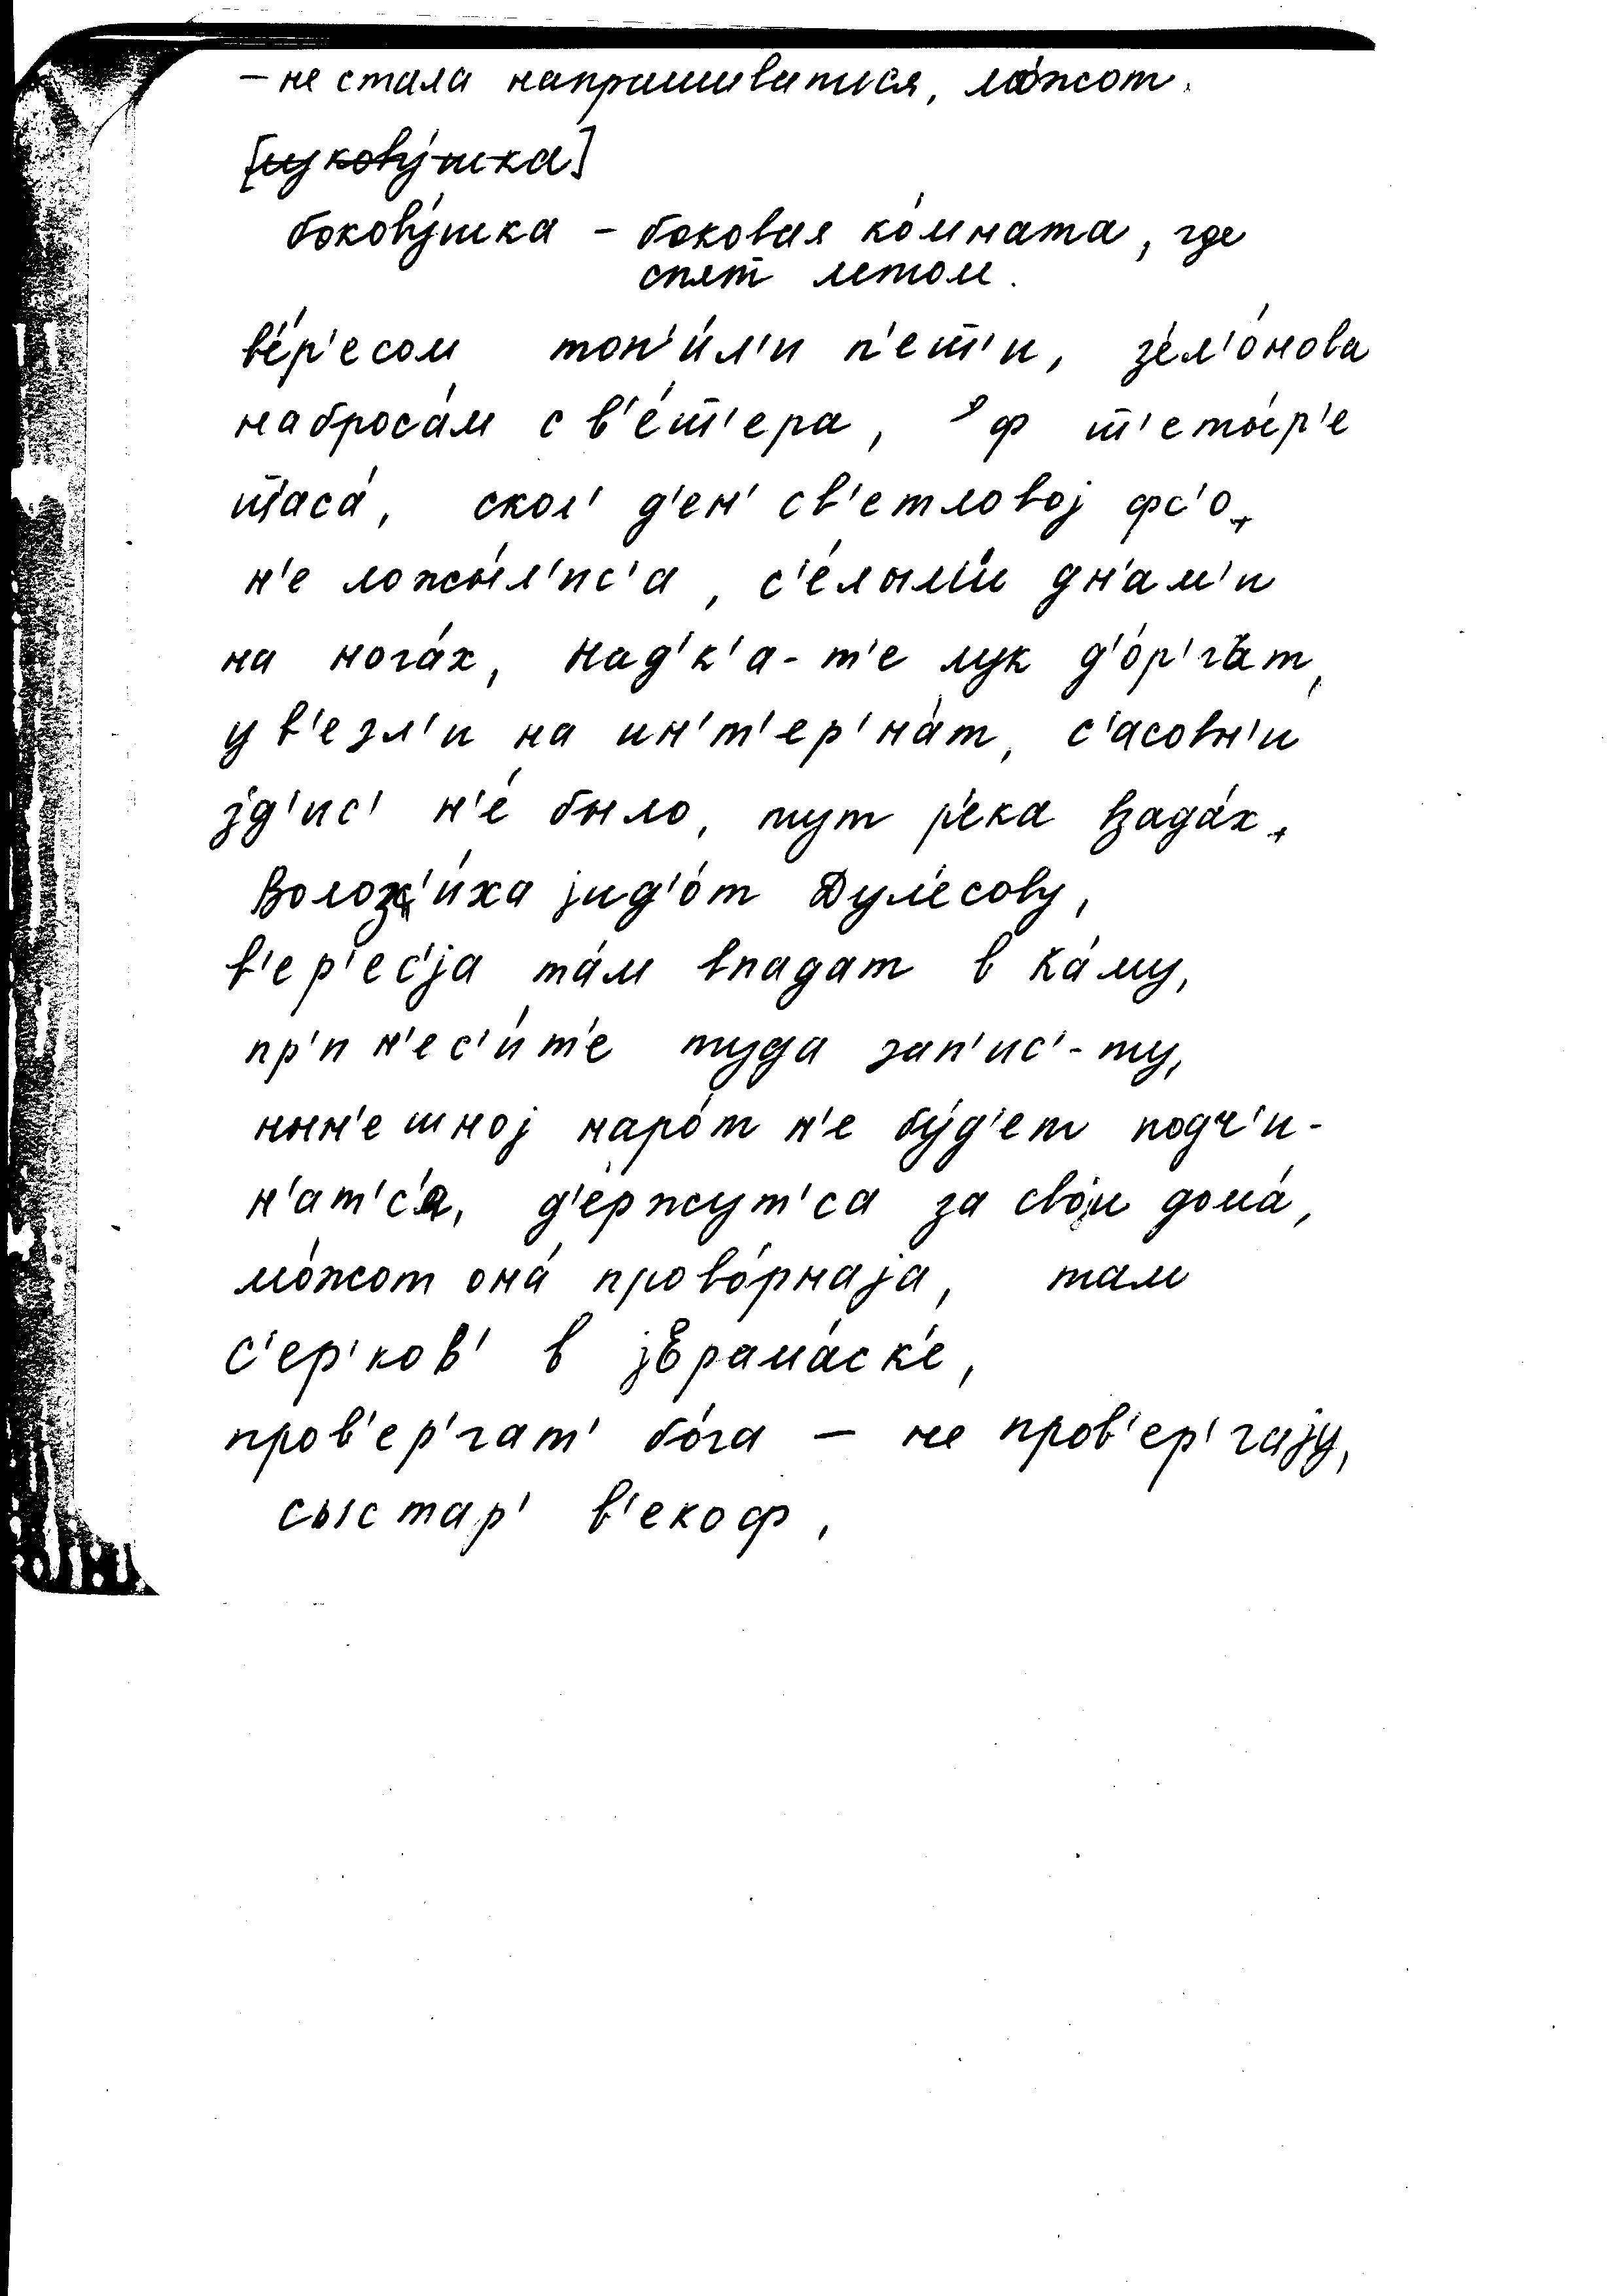 – не стала напрашиватися, мо́жот.
боковушка – боковая ко́мната, где
спят летом.
ве́р'есом топ'и́л'и п'еш'и, зел'о́нова
наброса́м с в'е́ш'ера, ф ш'еты́р'е
шаса́, скол' д'ен' св'етловој фс'о,
н'е ложы́л'ис'а, с'е́лыми дн'ам'и
на нога́х, над'к'а-т'е лук д'о́р'гат,
ув'езл'и на ин'т'ер'на́т, с'асовн'и
зд'ис' н'е́ было, тут р'ека взада́х,
Волож'и́ха јид'о́т Дул'есову,
в'ер'ес'ја та́м впадат в Ка́му,
пр'ин'ес'и́т'е туда зап'ис'-ту,
нын'ешној наро́т н'е бу́д'ет подч'и-
н'ат'с'а, д'ержут'са за свои дома́,
мо́жот она́ прово́рнаја, там
с'ер'ков' в јЕрама́ск'е,
пров'ер'гат' бо́га – не пров'ер'гају,
сыстар' в'екоф,